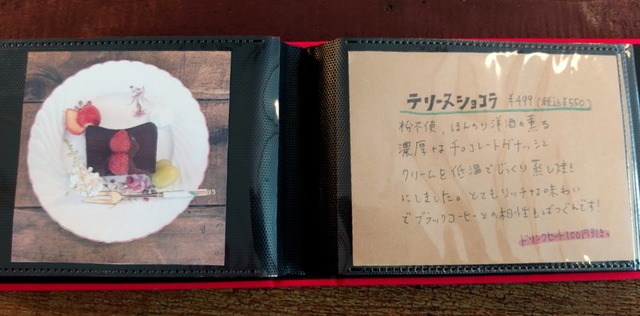 テリーヌショコラ ¥499(税込¥550)
粉不使、ほんのり洋酒の薫る
濃厚なチョコレートガナッシュ
クリームを低温でじっくり蒸し焼き
にしました。とてもリッチな味わい
でブラックコーヒーとの相性もばつぐんです!
ドリンクセット100円引き